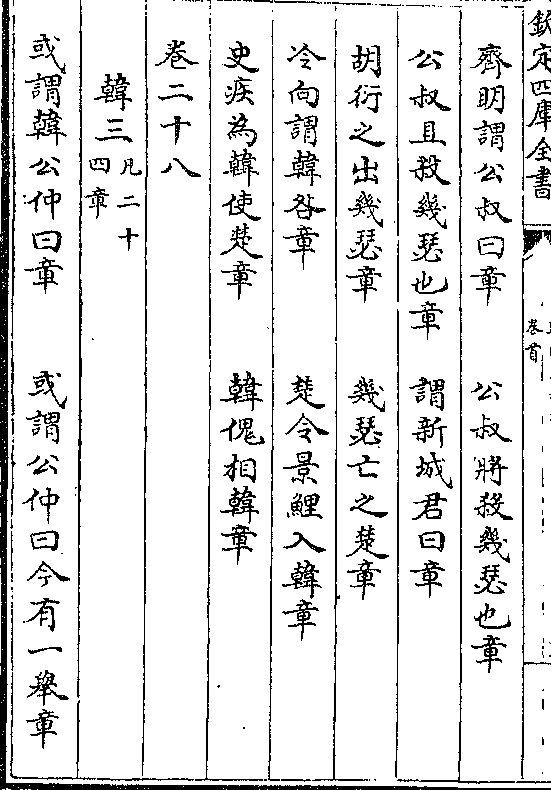 欽定四庫全書
卷首
齊明謂公叔曰章 公叔將殺幾瑟也章
公叔且殺幾瑟也章 謂新城君曰章
胡衍之出幾瑟章 幾瑟亡之楚章
冷向謂韓咎章 楚令景鯉入韓章
史疾為韓使楚章 韓傀相韓章
卷二十八
韓三凡二十四章
或謂韓公仲曰章 或謂公仲曰今有一舉章